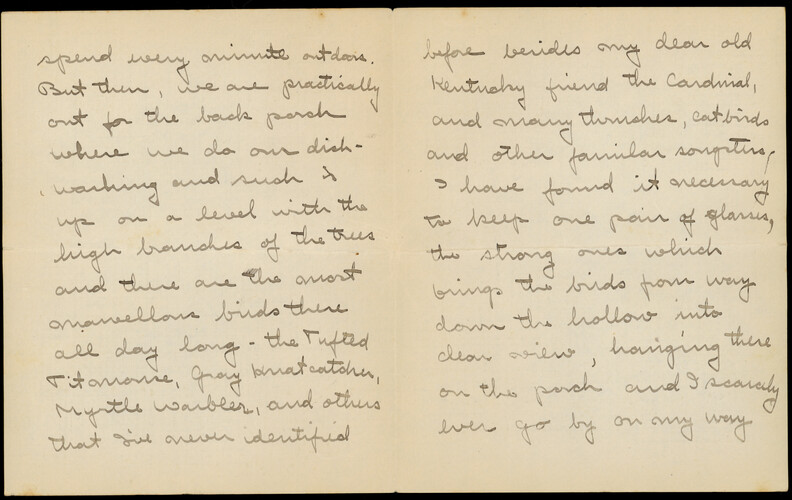 spend every minute outdoors.
But then, we are practically
out for the back porch
where we do our dish-
washing and such is
up on a level with the
high branches of the trees
and there are the most
marvellous birds there
all day long - the Tufted
Titmouse, Gray Gnatcatcher,
Myrtle Warbler, and others
that I've never identified
before besides my dear old
Kentucky friend the Cardinal,
and many thrushes, catbirds
and other familar songsters,
I have found it necessary
to keep one pair of glasses,
the strong ones which
brings the birds from way
down the hollow into
clear view, hanging there
on the porch and I scarcely
ever go by on my way